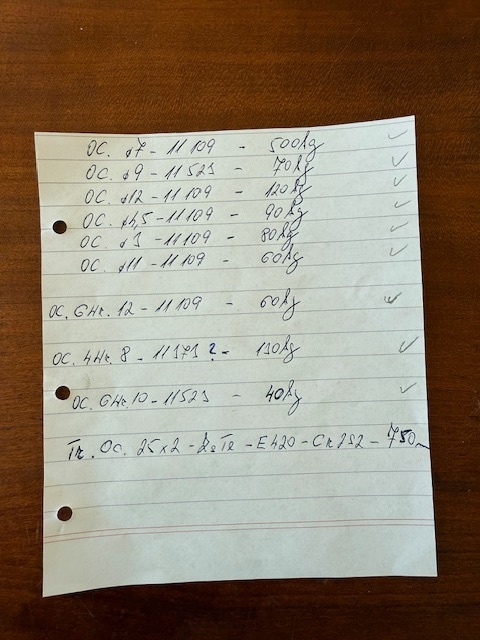 OC. ø7 - 11109 - 500kg
OC. ø9 - 11523 - 70kg
OC. ø12 - 11109 - 120kg
OC. ø4,5 - 11109 - 90kg
OC. ø3 - 11109 - 80kg
OC. ø11 - 11109 - 60kg
OC. 6Hr. 12 - 11109 - 60kg
OC. 4Hr. 8 - 11373 ? - 130kg
OC. 6Hr. 10 - 11523 - 40kg
Tr. OC. 25x2 - - E420 - CR2S2 - 750m